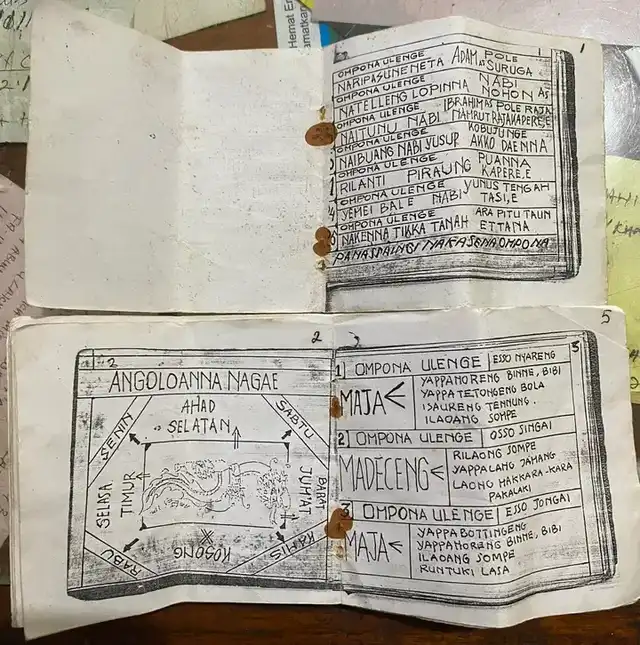 Hemat En
amatkan
1
1
OMPONA ULENGE ADAM POLE
NARIPASUNENETA AS SURUGA
OMPONA ULENGE NABI
NATELLENG LOPINNA NOHON AS
OMPONA ULENGE IBRAHIM AS POLE RAJA
NAITUNU NABI NAMRUT RAJAKAPERE,E
OMPONA ULENGE KOBUJUNGE
NAIBUANG NABI YUSUP AKKO DAENNA
OMPONA ULENGE PUANNA
RILANTI PIRAUNG KAPERE,E
OMPONA ULENGE YUNUS TENGAH
YEMEI BALE NABI TASI,E
OMPONA ULENGE ARA PITU TAUN
NAKENNA TIKKA TANAH ETTANA
2
2
ANGOLOANNA NAGAE
AHAD
SELATAN
SENIN
SABTU
SELASA
TIMUR
BARAT
JUMAT
RABU
KOSONG
KAMIS
5
3
1 OMPONA ULENGE ESSO NYARENG
MAJA
YAPPAMORENG BINNE, BIBI
YAPPA TETONGENG BOLA
ISAURENG TENNUNG.
ILAOANG SOMPE
2) OMPONA ULENGE OSSO SINGAI
MADECENG
RILAONG SOMPE
YAPPALANG JAMANG
LAONG MAKKARA-KARA
PAKALAKI
3 OMPONA ULENGE ESSO JONGAI
MAJA
YAPPABOTTINGENG
YAPPAMORENG BINNE, BIBI
ILAOANG SOMPE
RUNTUKI LASA